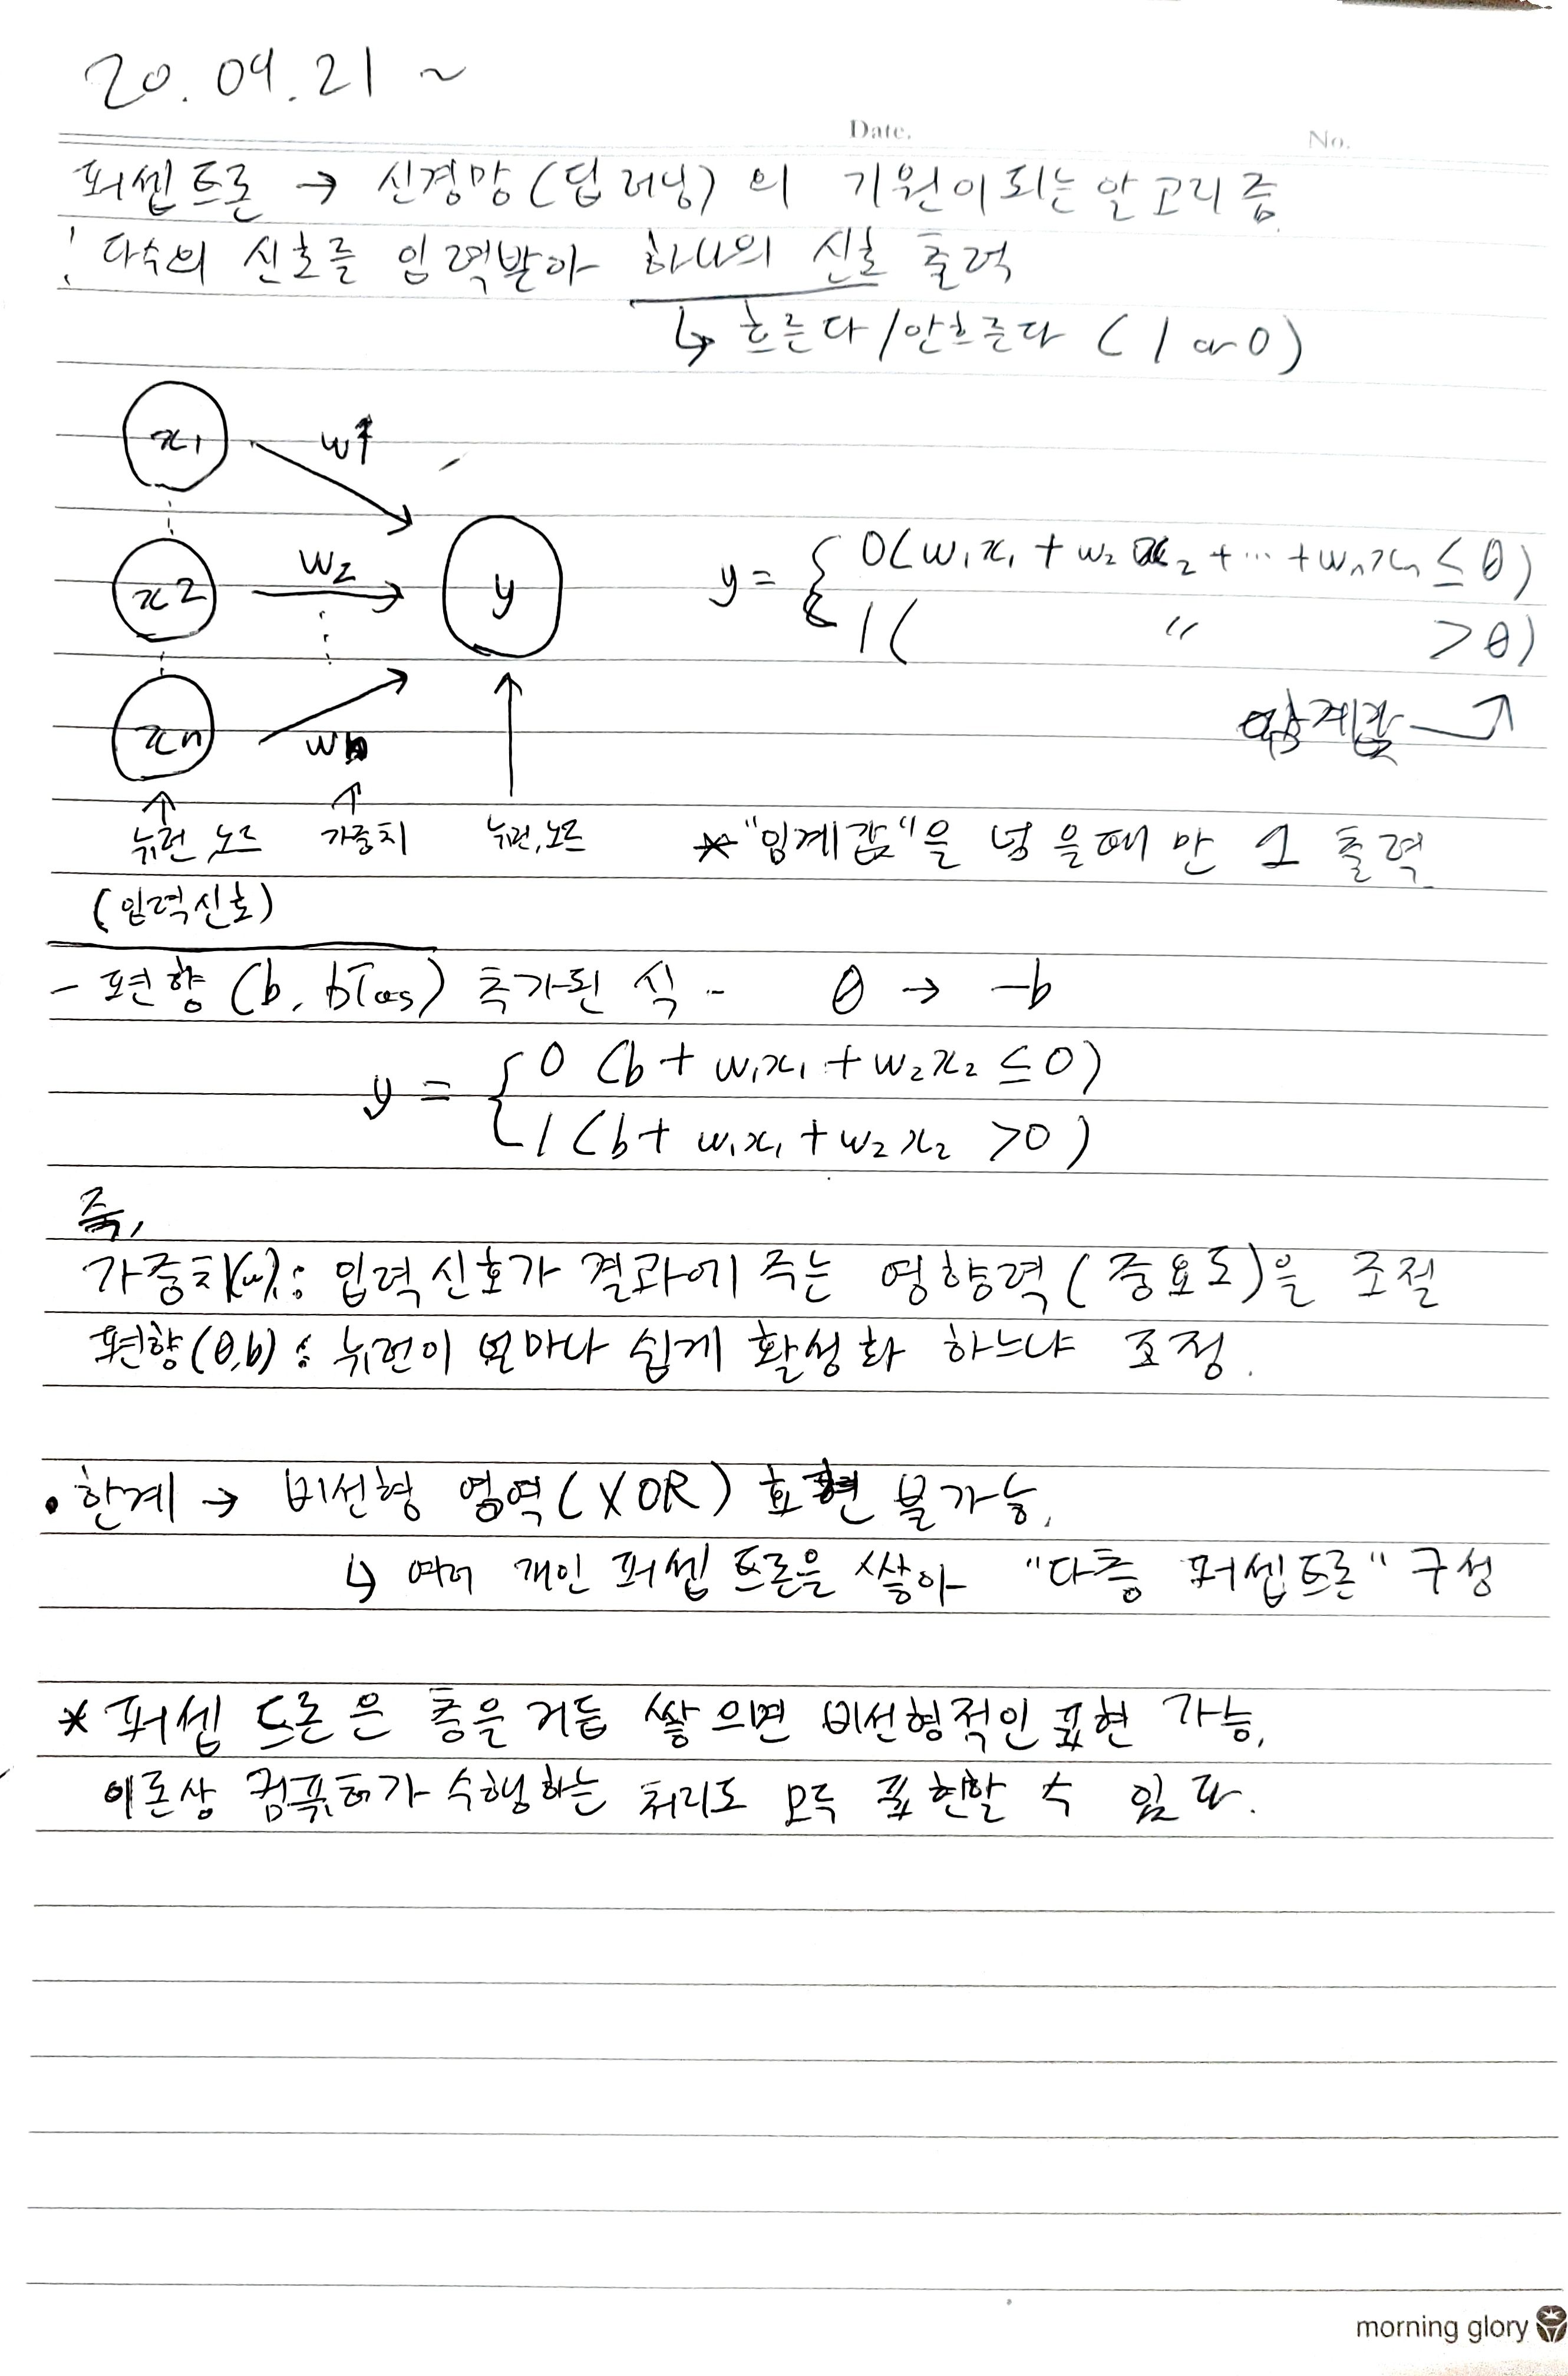 20.09.21 ~
Date.
No.
퍼셉트론 → 신경망(딥러닝)의 기원이 되는 알고리즘.
: 다수의 신호를 입력받아 하나의 신호 출력
↳ 흐른다/안흐른다 (1 or 0)
x1 w1
x2 w2 y
xn wn
y = { 0(w₁x₁ + w₂x₂ + ⋯ + wₙxₙ ≤ θ)
1( " > θ)
임계값
뉴런, 노드 가중치 뉴런, 노드
* "임계값"을 넘을때만 1 출력
(입력신호)
- 편향(b, bias) 추가된 식 - θ → -b
y = { 0 (b + w₁x₁ + w₂x₂ ≤ 0)
1 (b + w₁x₁ + w₂x₂ > 0)
즉,
가중치(w): 입력신호가 결과에 주는 영향력(중요도)을 조절
편향(θ,b): 뉴런이 얼마나 쉽게 활성화 하느냐 조정.
• 한계 → 비선형 영역(XOR) 표현 불가능.
↳ 여러 개인 퍼셉트론을 쌓아 "다층 퍼셉트론" 구성
* 퍼셉트론은 층을 거듭 쌓으면 비선형적인 표현 가능,
이론상 컴퓨터가 수행하는 처리도 모두 표현할 수 있다.
morning glory